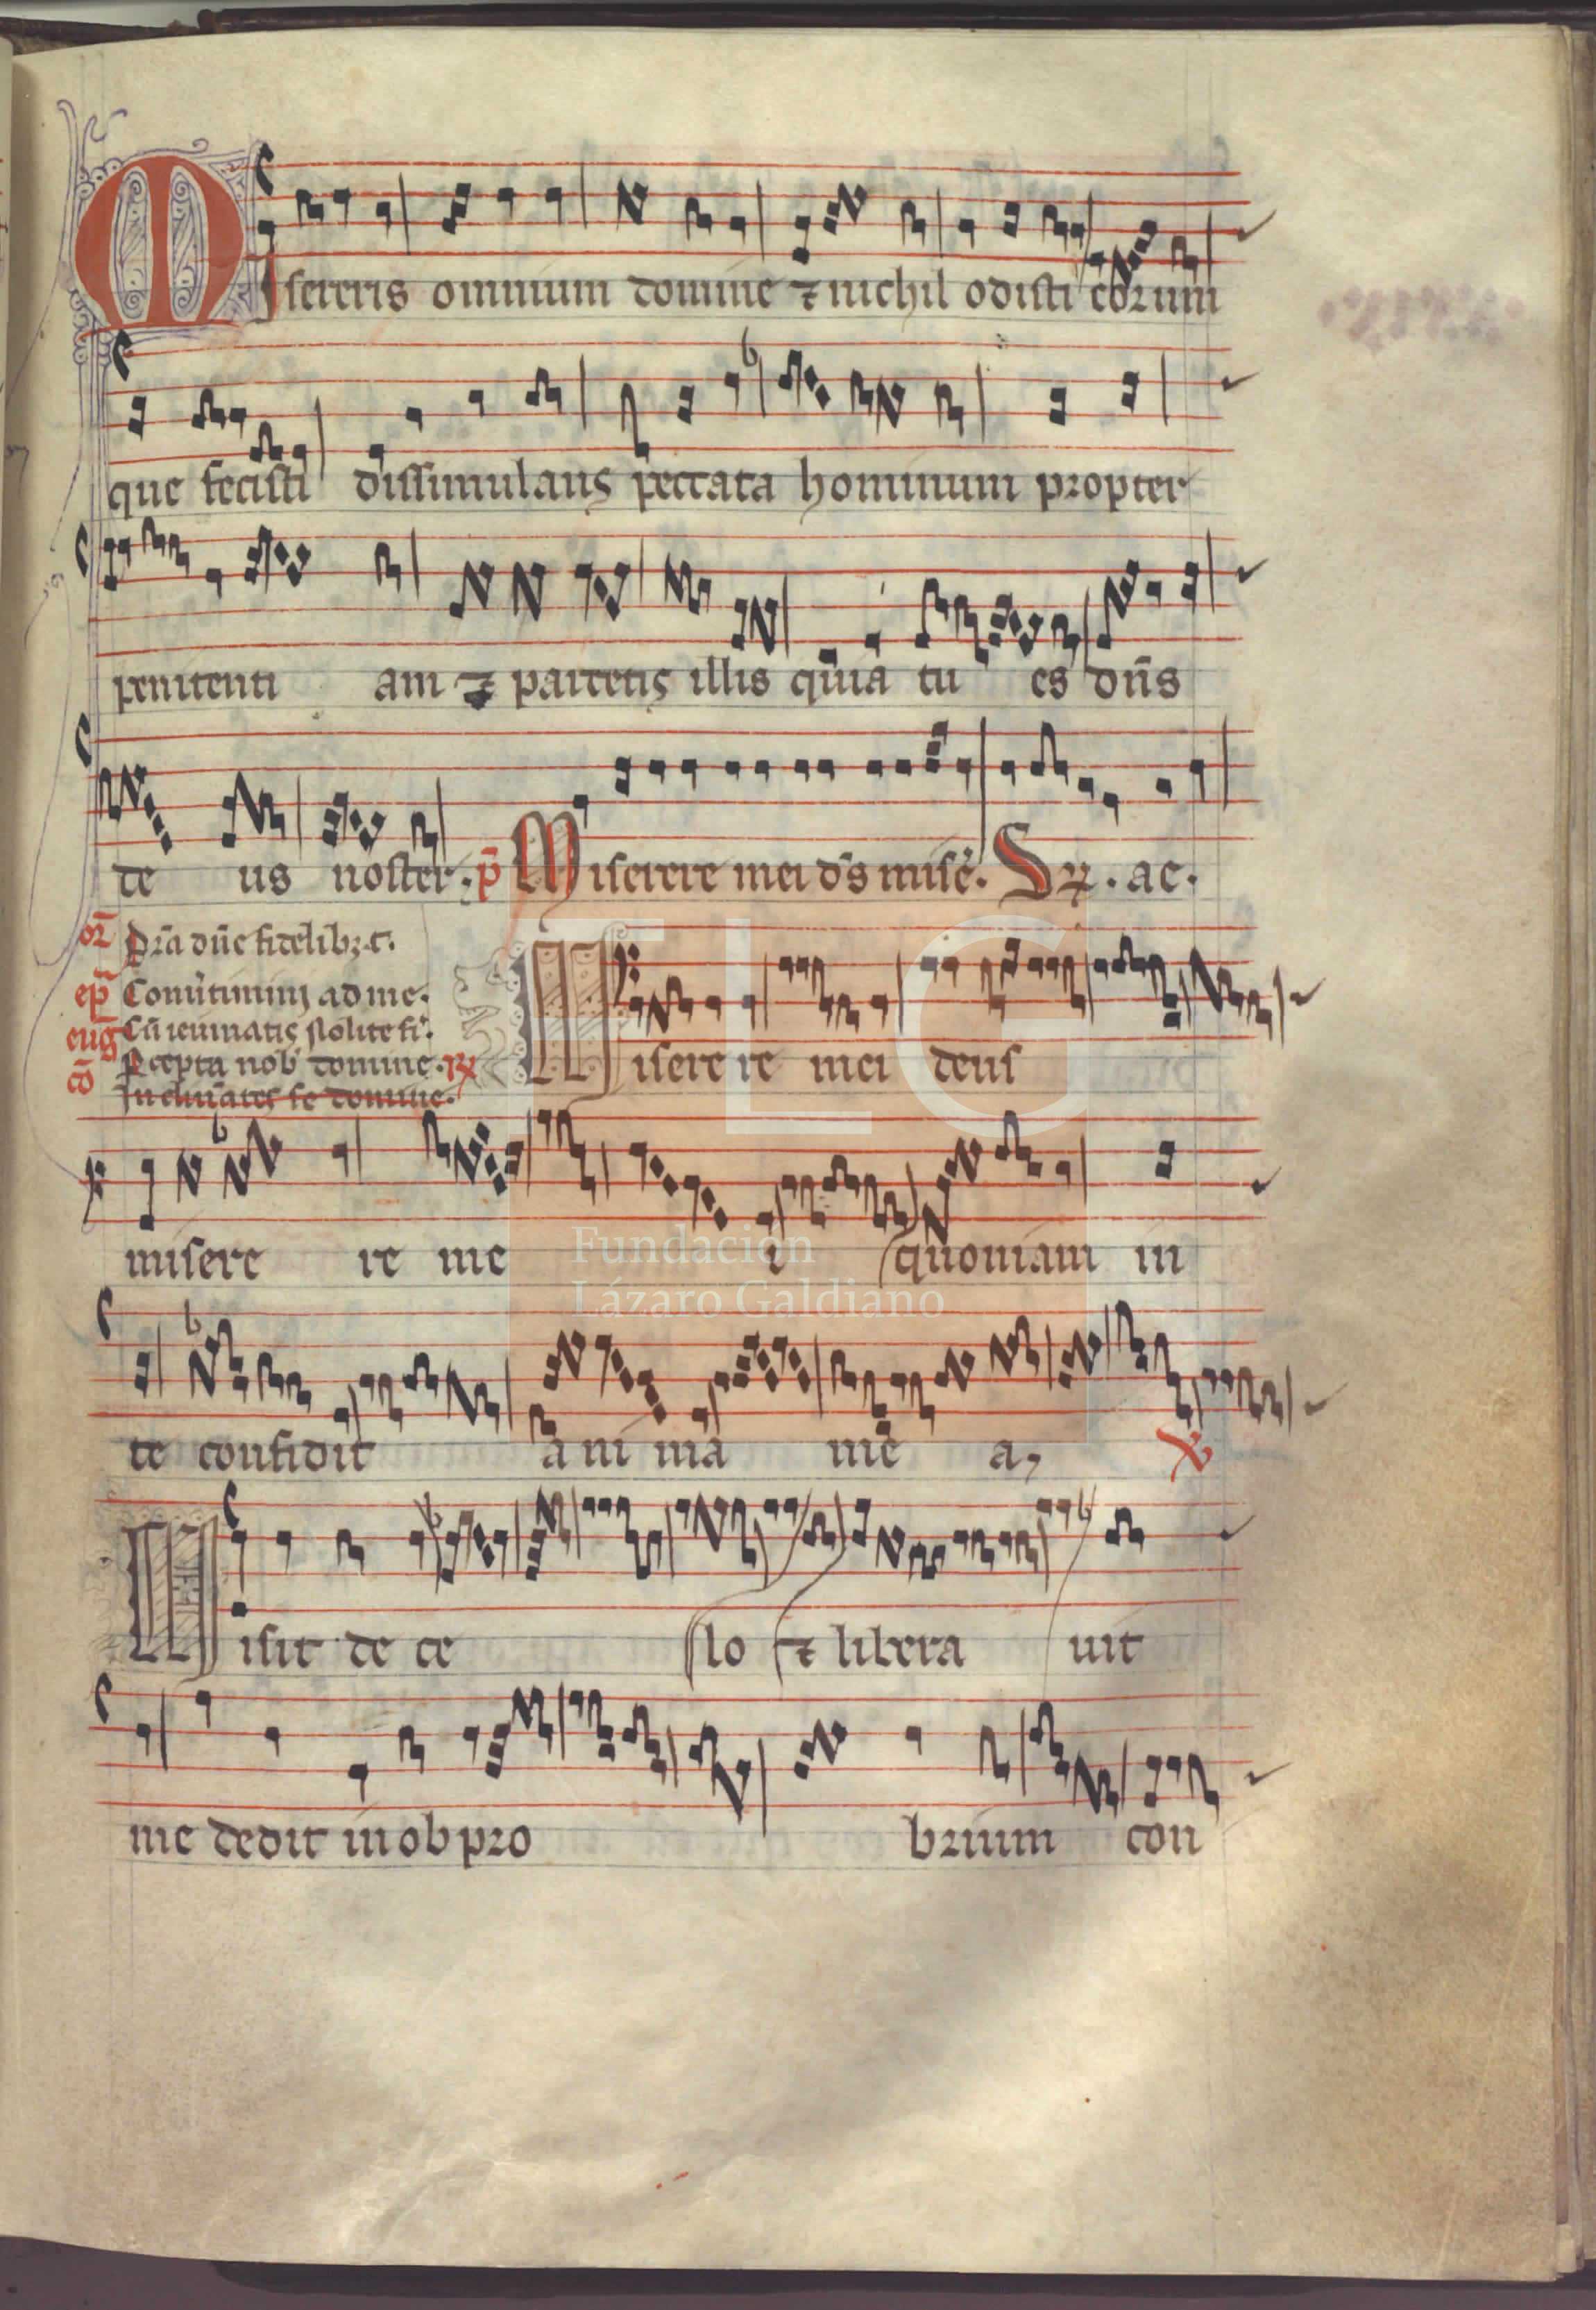 Misereris omnium domine ⁊ nichil odisti eorum
que fecisti dissimulans peccata hominum propter
penitenti am ⁊ parcens illis quia tu es dn̄s
de us noster. p̄ Miserere mei ds mise. ac.
or̄ P̄ra dn̄e fidelibꝫ. t.
ep̄ Conu̾timini ad me.
euḡ Cū ieiunatis nolite fi.
cō P̄cepta nob domine. ℟
Inclinātes se domine.
Misere re mei deus
misere re me i quoniam in
te confidit a ni ma me a, ℣
Misit de ce lo ⁊ libera uit
me dedit in ob pro brium con
Fundación
Lázaro Galdiano